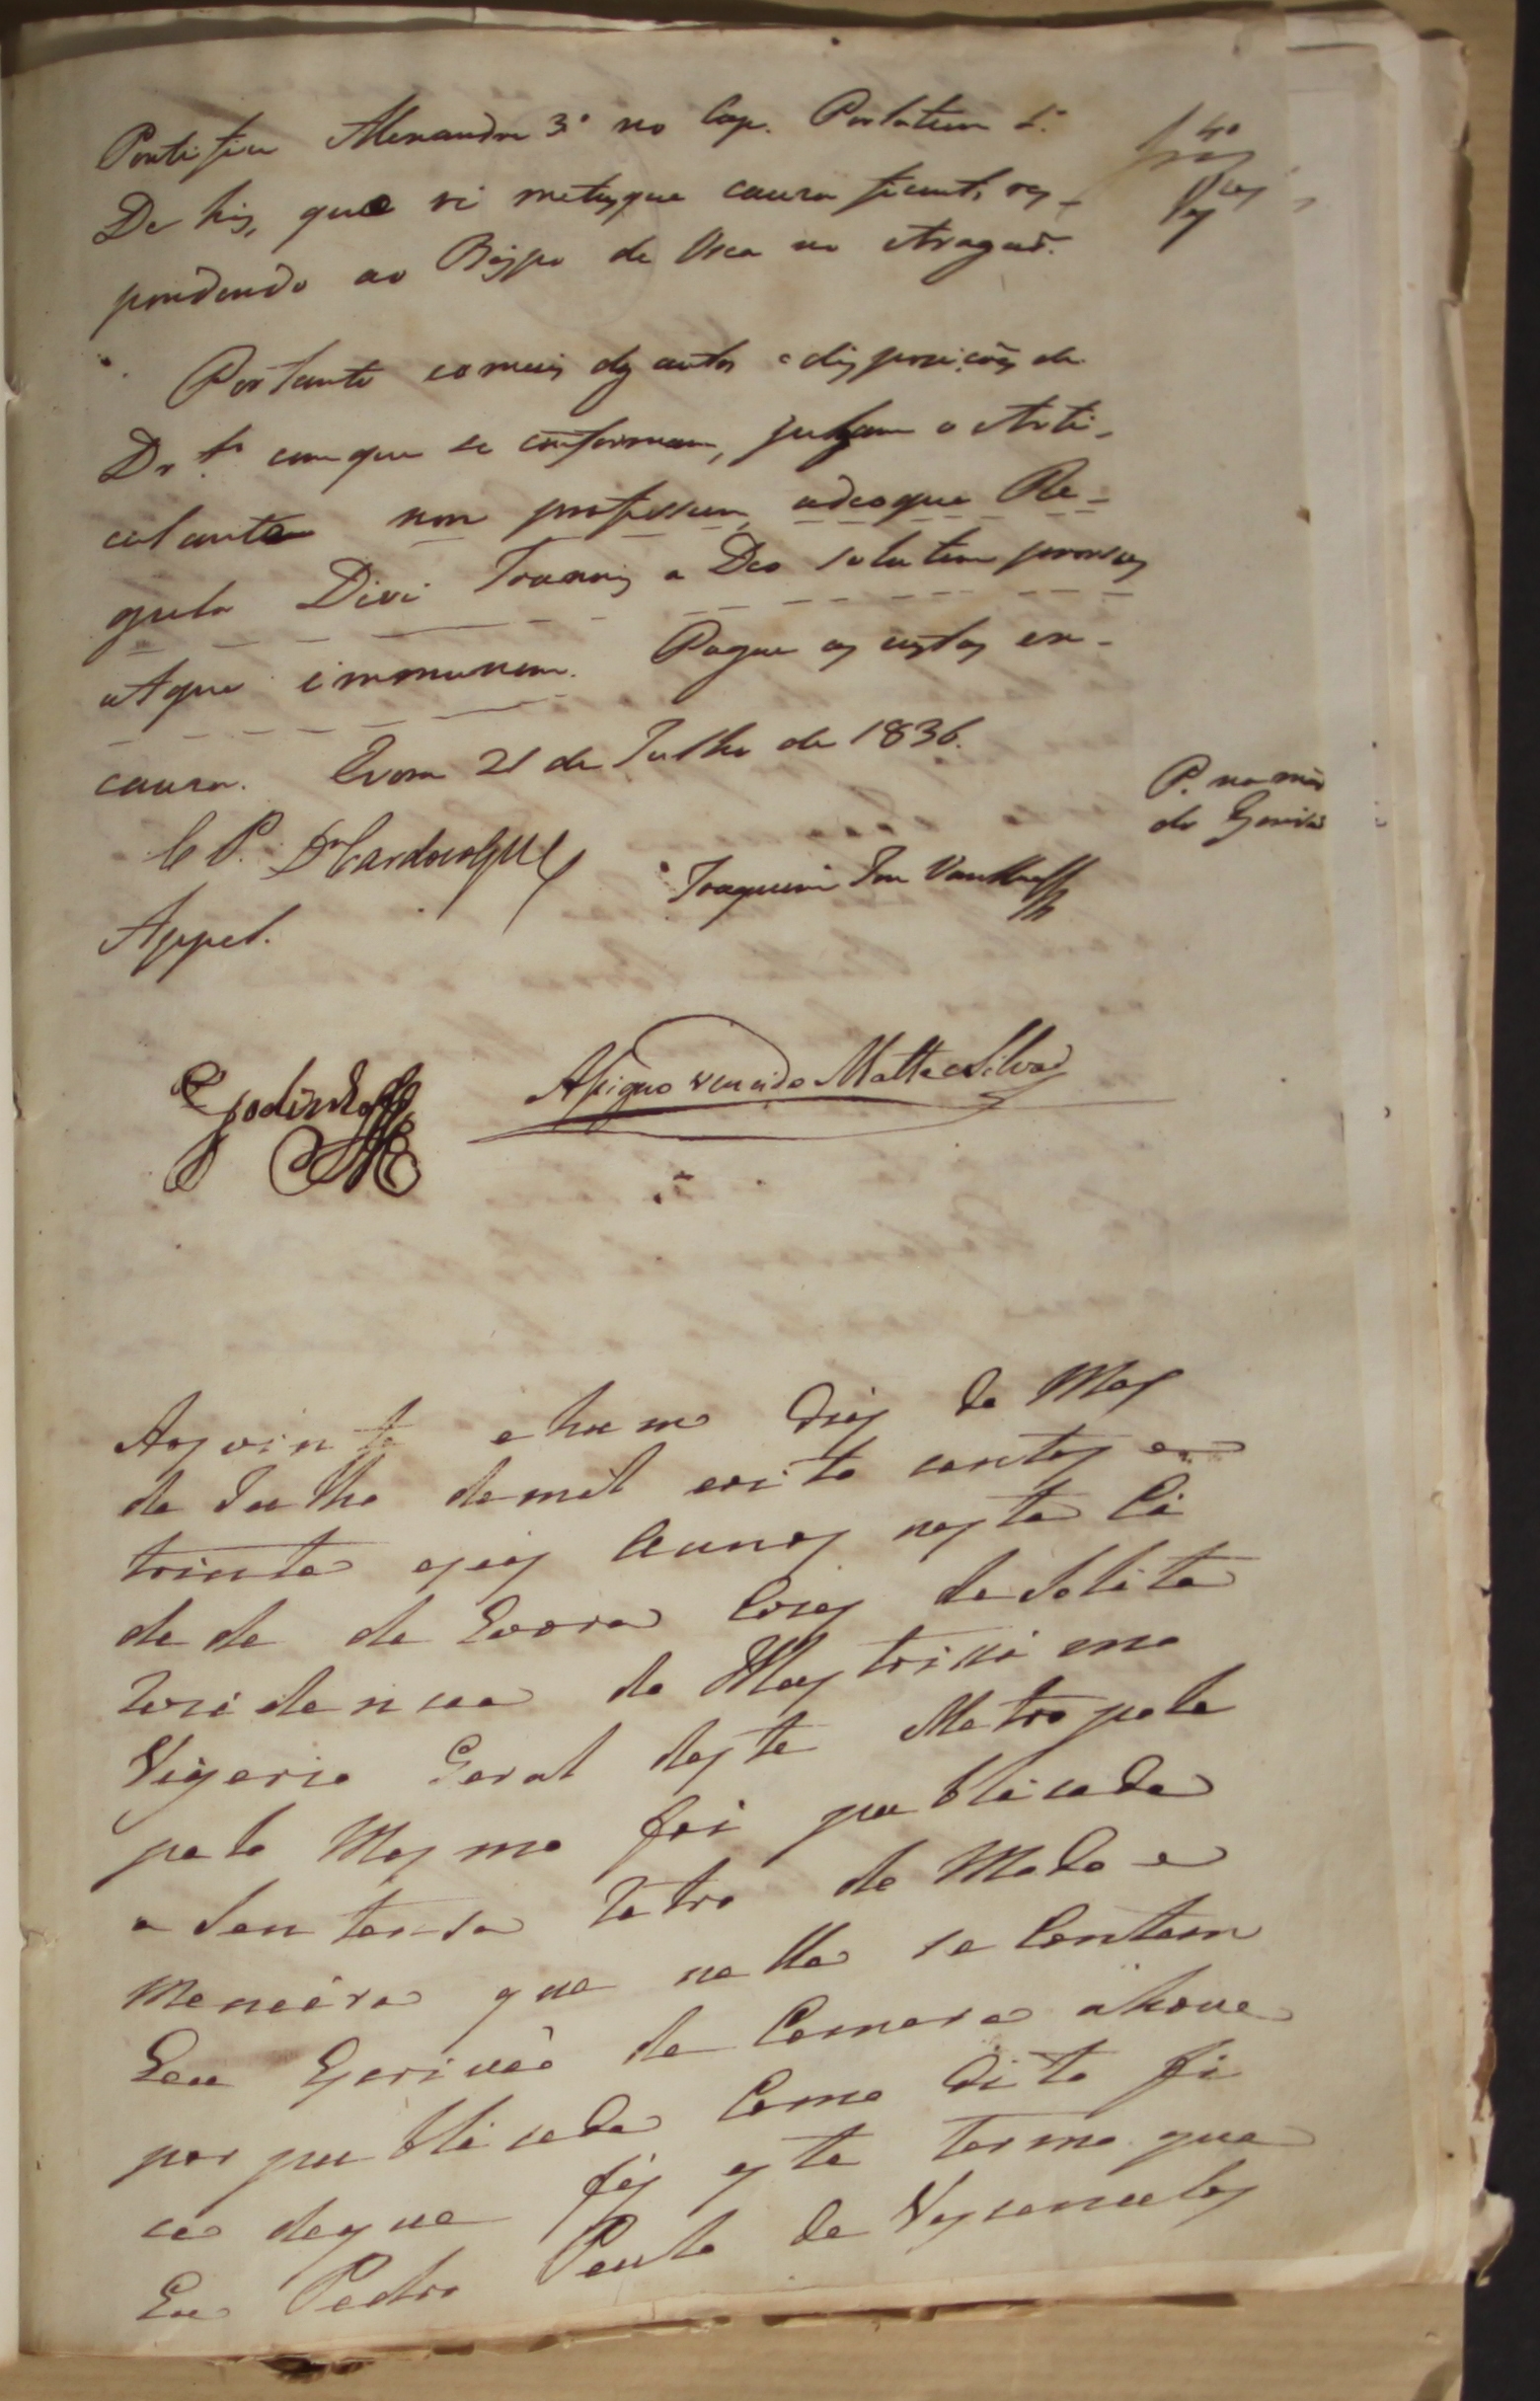 Pontifice Alexandre 3º no Cap. Perlatum 1º
De his, quæ vi metusque causa fiunt, res-
pondendo ao Bispo de Osca no Aragaõ.
Portanto o mais dos autos e disposiçoẽs de
Dr.to com que se conformam, julgam o Arti-
culante non professum, adeoque Re-
gula Divi Joannis a Deo solutum prorsus
atque immunem. Pague as custas ex-
causa. Evora 21 de Julho de 1836.
P. na maõ
do Escrivaõ
C P. Dr Cardoso
Joaquim Joze
Appel.
Godinho
Assigno vencido Matta e Silva
Aos vinte e hum dias do Mes
de Julho de mil oito centos e
trinta e seis Annos nesta Ci
dade de Evora Cazas da Solita
rezidencia do Illustrissimo
Vigario Geral deste Metropole
pelo Mesmo foi publicada
a Sentensa retro de Modo e
Maneira que nella se Contem
Eeu Escrivaõ da Camara ahouve
por publicada Como dito fi
ca deque fis este termo que
Eu Pedro Paulo de Vasconcelos